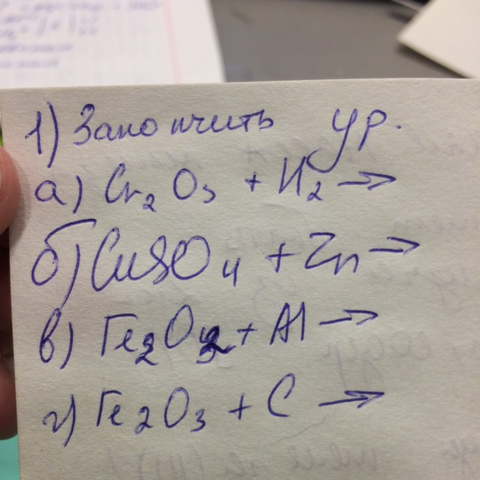 1) Закончить ур.
а) Cr₂O₃ + H₂ →
б) CuSO₄ + Zn →
в) Fe₂O₃ + Al →
г) Fe₂O₃ + C →